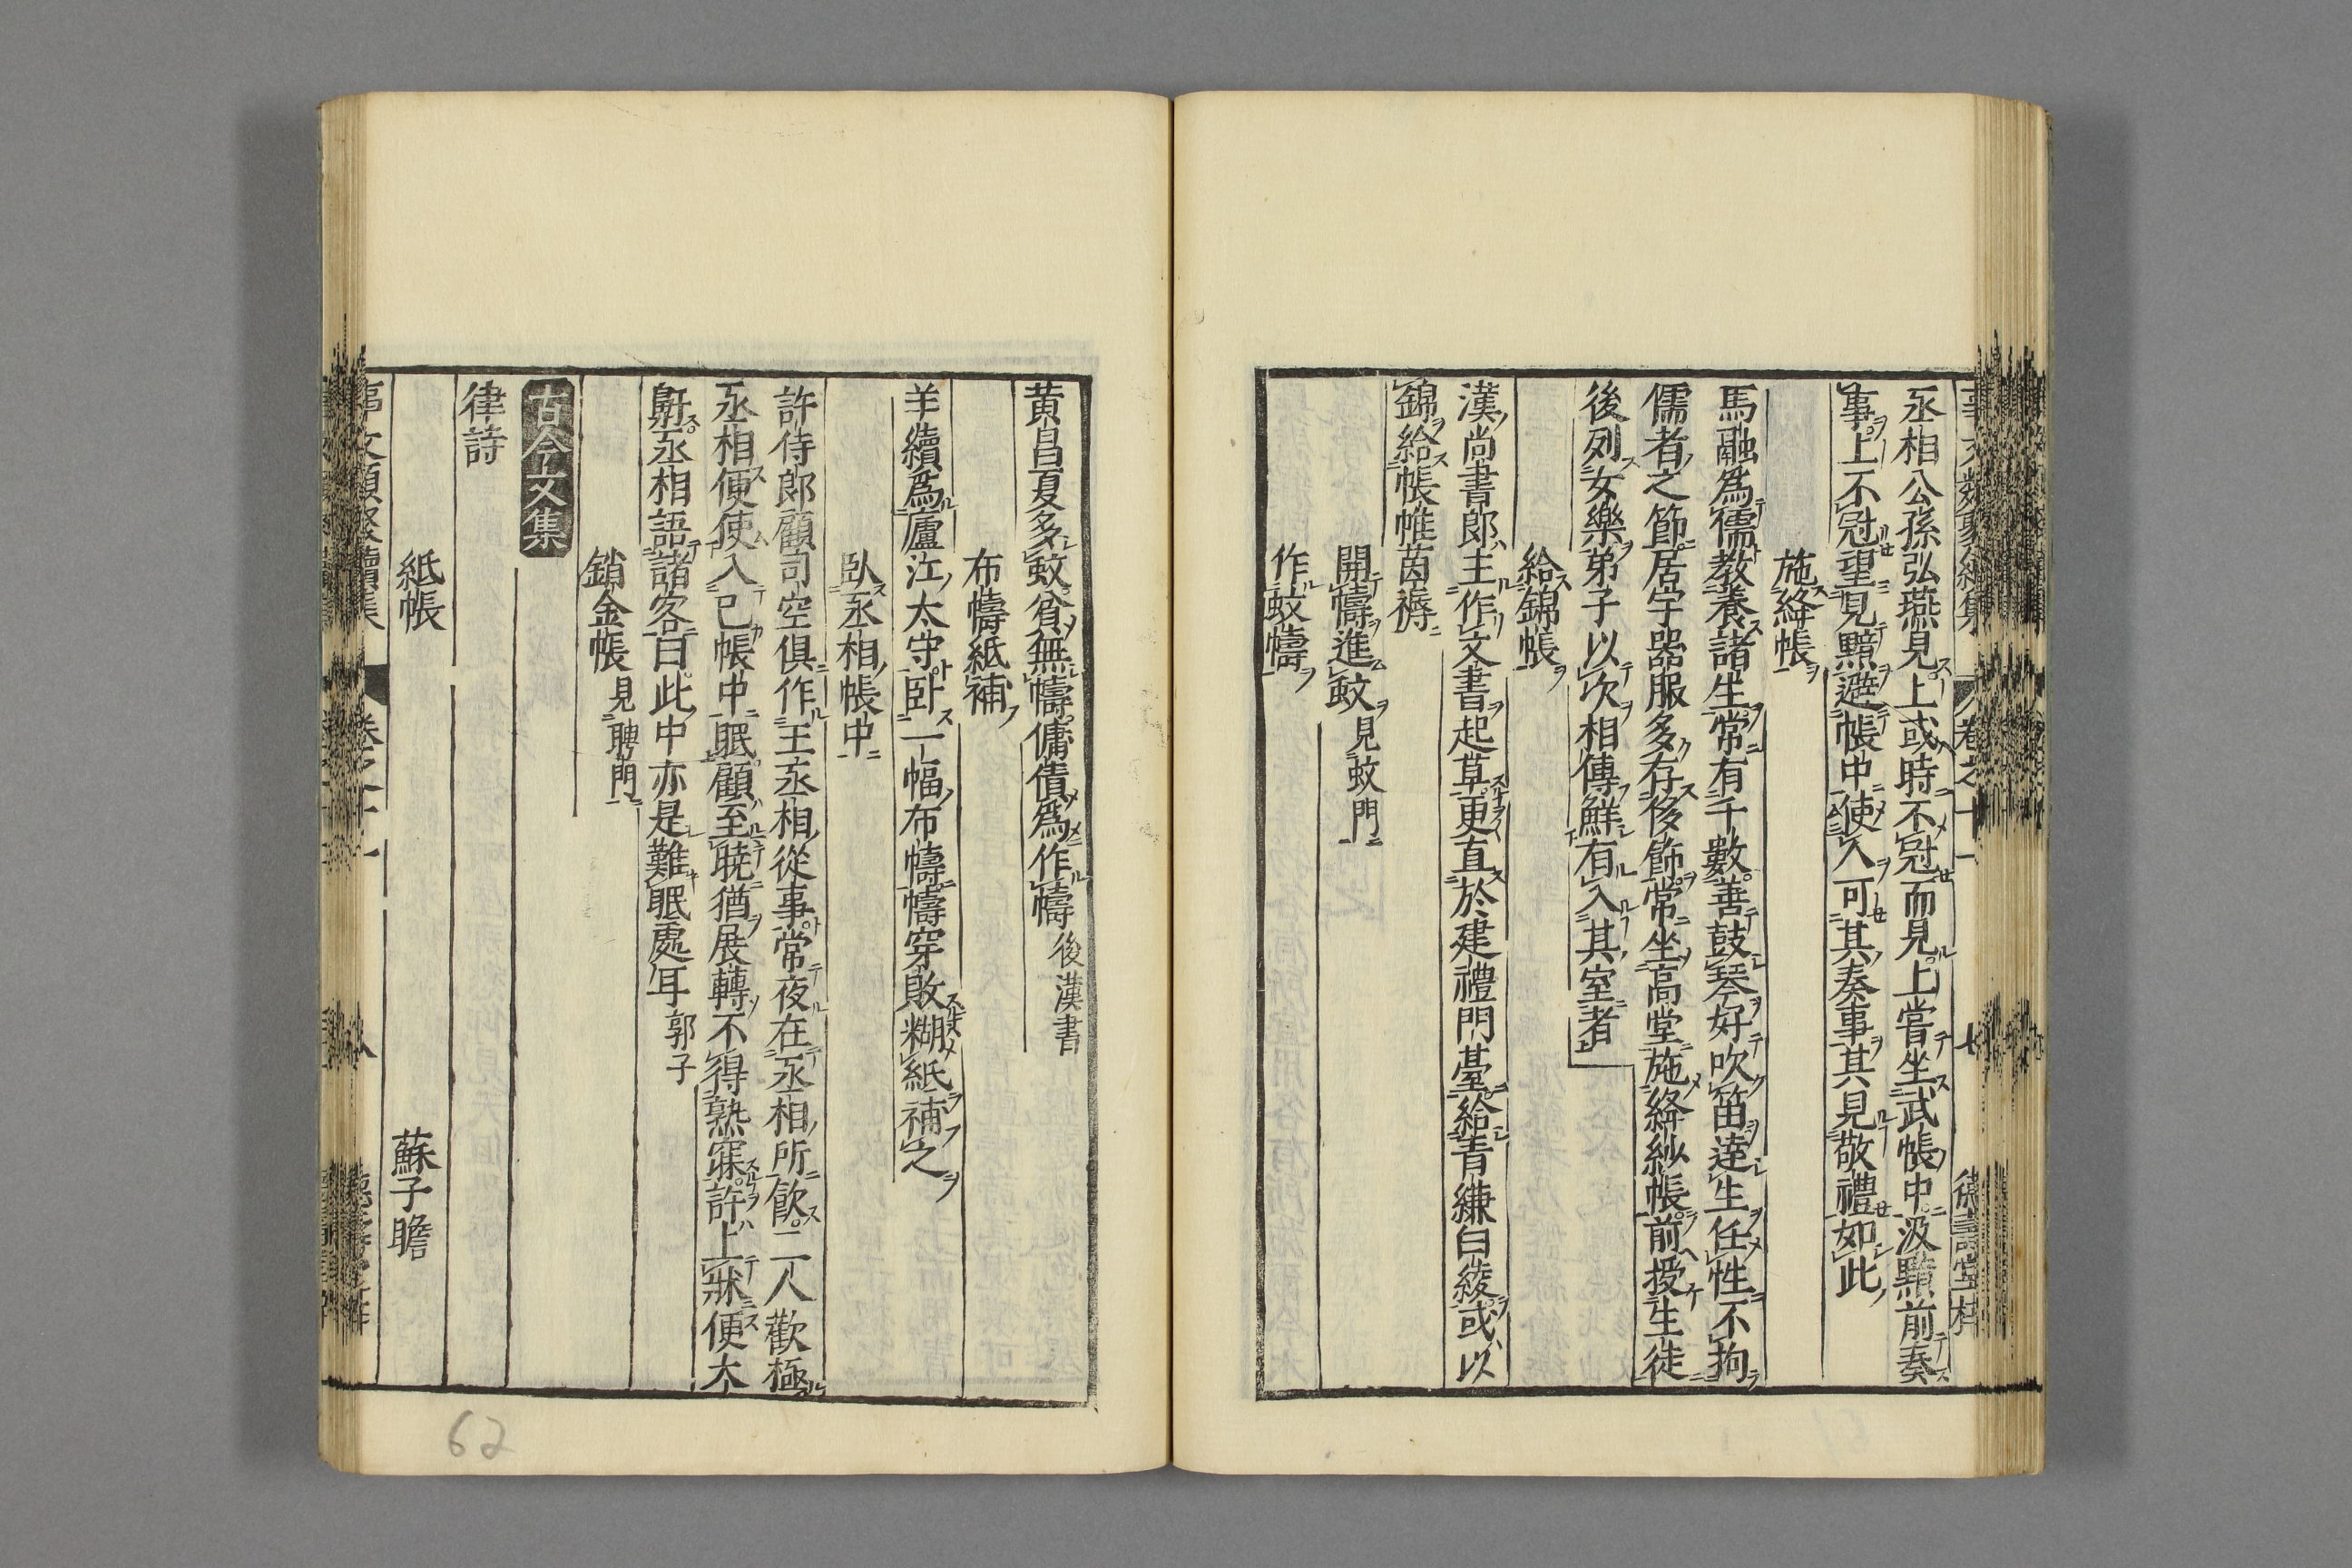 丞相公孫弘燕見上或時不冠而見上嘗坐武帳中汲黯前奏
事上不冠望見黯避帳中使人可其奏事其見敬禮如此
施絳帳
馬融爲儒教養諸生常有千數善鼓琴好吹笛達生任性不拘
儒者之節居宇器服多存侈飾常坐高堂施絳紗帳前授生徒
後列女樂弟子以次相傳鮮有入其室者
給錦帳
漢尚書郎主作文書起草更直於建禮門臺給青縑白綾或以
錦給帳帷茵褥
開幬進蚊見蚊門
作蚊幬
黃昌夏多蚊貧無幬傭債爲作幬後漢書
布幬紙補
羊續爲廬江太守卧一幅布幬幬穿敗糊紙補之
臥丞相帳中
許侍郎顧司空俱作王丞相從事常夜在丞相所飲二人歡極
丞相便使入己帳中眠顧至曉猶展轉不得熟寐許上牀便大
鼾丞相語諸客曰此中亦是難眠處耳郭子
銷金帳見聘門
古今文集
律詩
紙帳 蘇子瞻